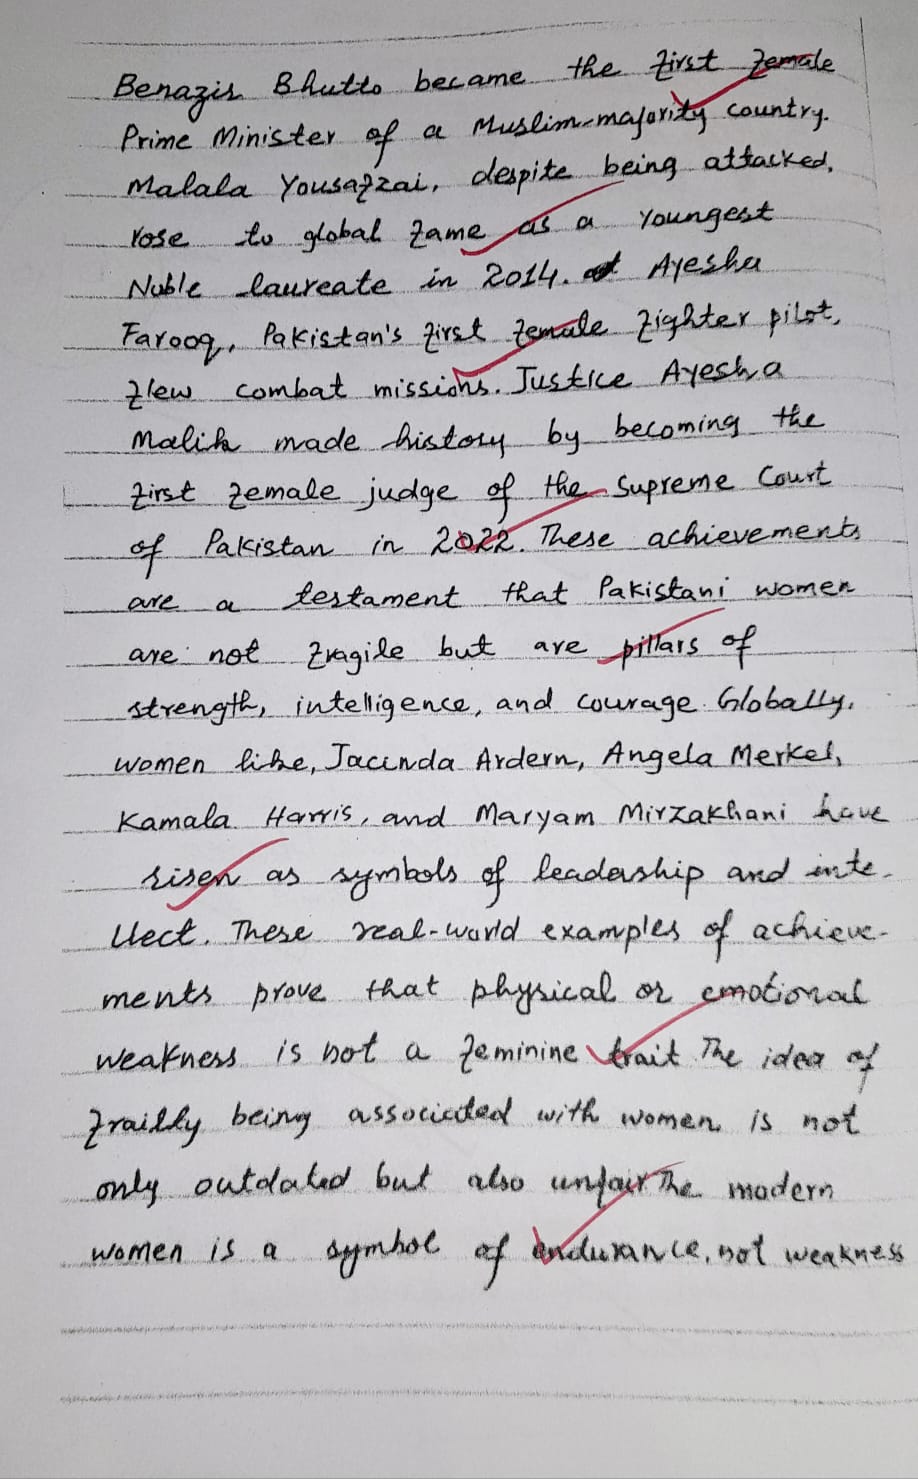 Benazir Bhutto became the first female
Prime Minister of a Muslim-majority country.
Malala Yousafzai, despite being attacked,
rose to global fame as a youngest
Noble laureate in 2014. Ayesha
Farooq, Pakistan's first female fighter pilot,
flew combat missions. Justice Ayesha
Malik made history by becoming the
first female judge of the Supreme Court
of Pakistan in 2022. These achievements
are a testament that Pakistani women
are not fragile but are pillars of
strength, intelligence, and courage. Globally,
women like, Jacinda Ardern, Angela Merkel,
Kamala Harris, and Maryam Mirzakhani have
risen as symbols of leadership and inte-
llect. These real-world examples of achieve-
ments prove that physical or emotional
weakness is not a feminine trait. The idea of
frailty being associated with women is not
only outdated but also unfair. The modern
women is a symbol of endurance, not weakness